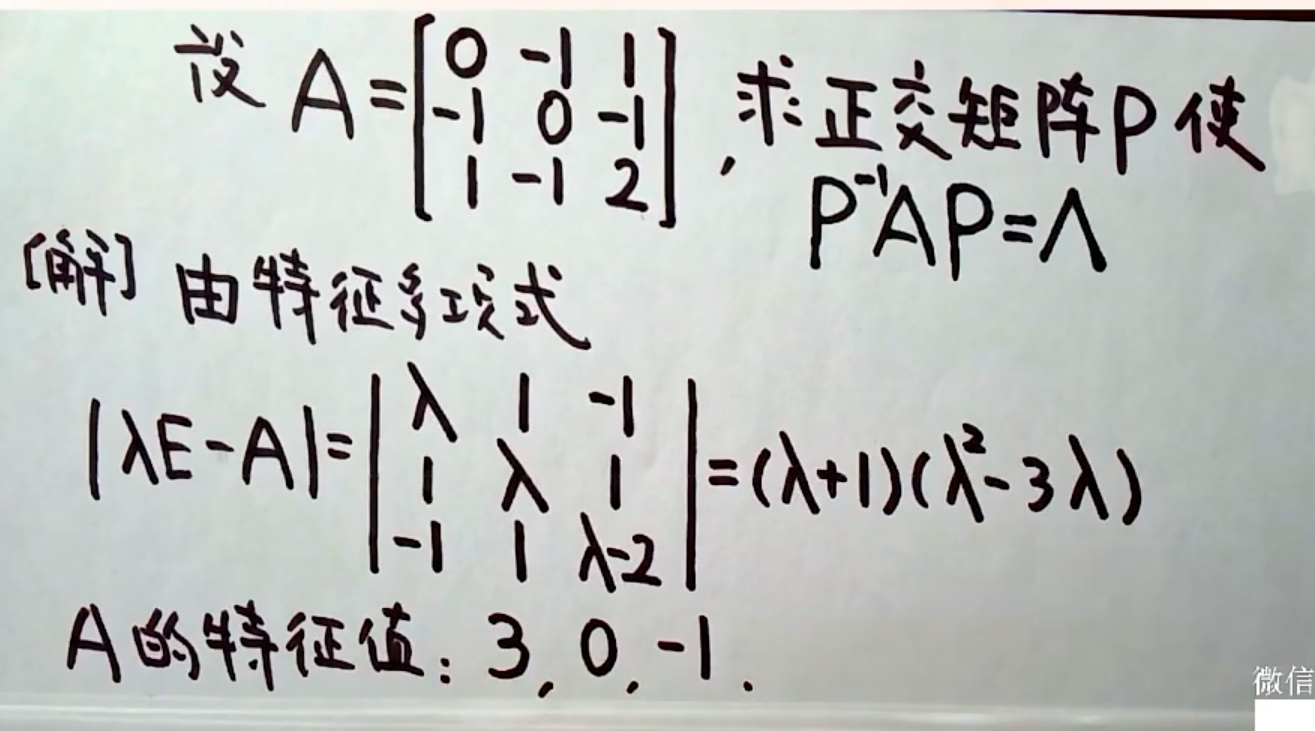 设 A = [0 -1 1; -1 0 -1; 1 -1 2], 求正交矩阵P使
P⁻¹AP=Λ
[解] 由特征多项式
|λE-A|= |λ 1 -1; 1 λ 1; -1 1 λ-2| =(λ+1)(λ²-3λ)
A的特征值: 3, 0, -1.
微信